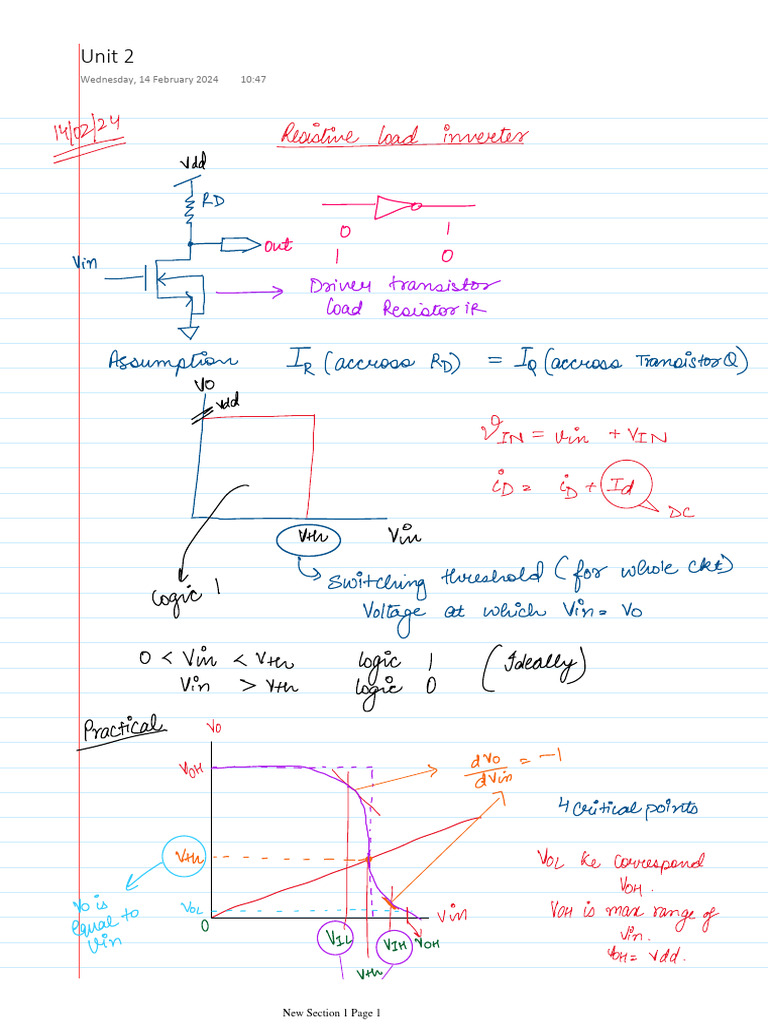 Unit 2
Wednesday, 14 February 2024 10:47
14/02/24
Resistive load inverter
Vdd
RD
out
Vin
0 1
1 0
Driver transistor
Load Resistor iR
Assumption IR (accross RD) = IQ (accross Transistor Q)
Vo
Vdd
VIN = vin + VIN
iD = iD + Id
DC
Vth
Vin
Logic 1
Switching threshold (for whole ckt)
Voltage at which Vin = Vo
0 < Vin < Vth logic 1 (Ideally)
Vin > Vth logic 0
Practical
Vo
VOH
dVo/dVin = -1
4 critical points
Vth
VOL ke correspond
VOH.
Vo is
equal to
Vin
VOL
0
Vin
VOH is max range of
Vin.
VOH = Vdd.
VIL
VIH
VOH
Vth
New Section 1 Page 1